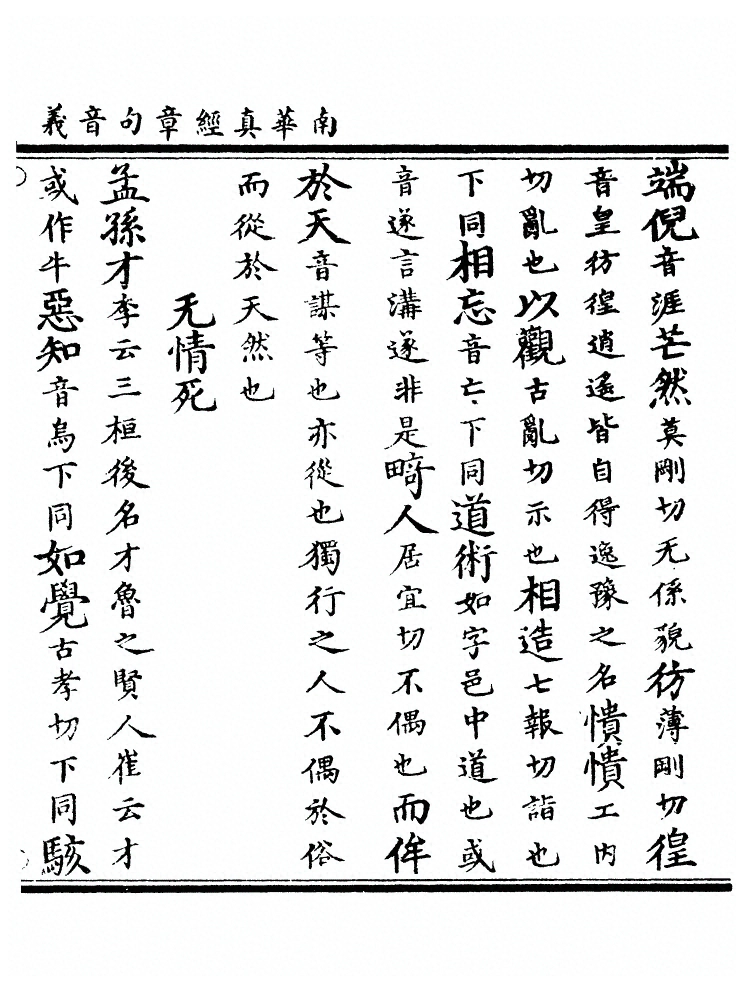 南華真經章句音義
端倪音涯芒然莫剛切无係貌彷薄剛切徨
音皇彷徨逍遙皆自得逸豫之名憒憒工內
切亂也以觀古亂切示也相造七報切詣也
下同相忘音亡下同道術如字邑中道也或
音遂言溝遂非是畸人居宜切不偶也而侔
於天音謀等也亦從也獨行之人不偶於俗
而從於天然也
无情死
孟孫才李云三桓後名才魯之賢人崔云才
或作牛惡知音烏下同如覺古孝切下同駭